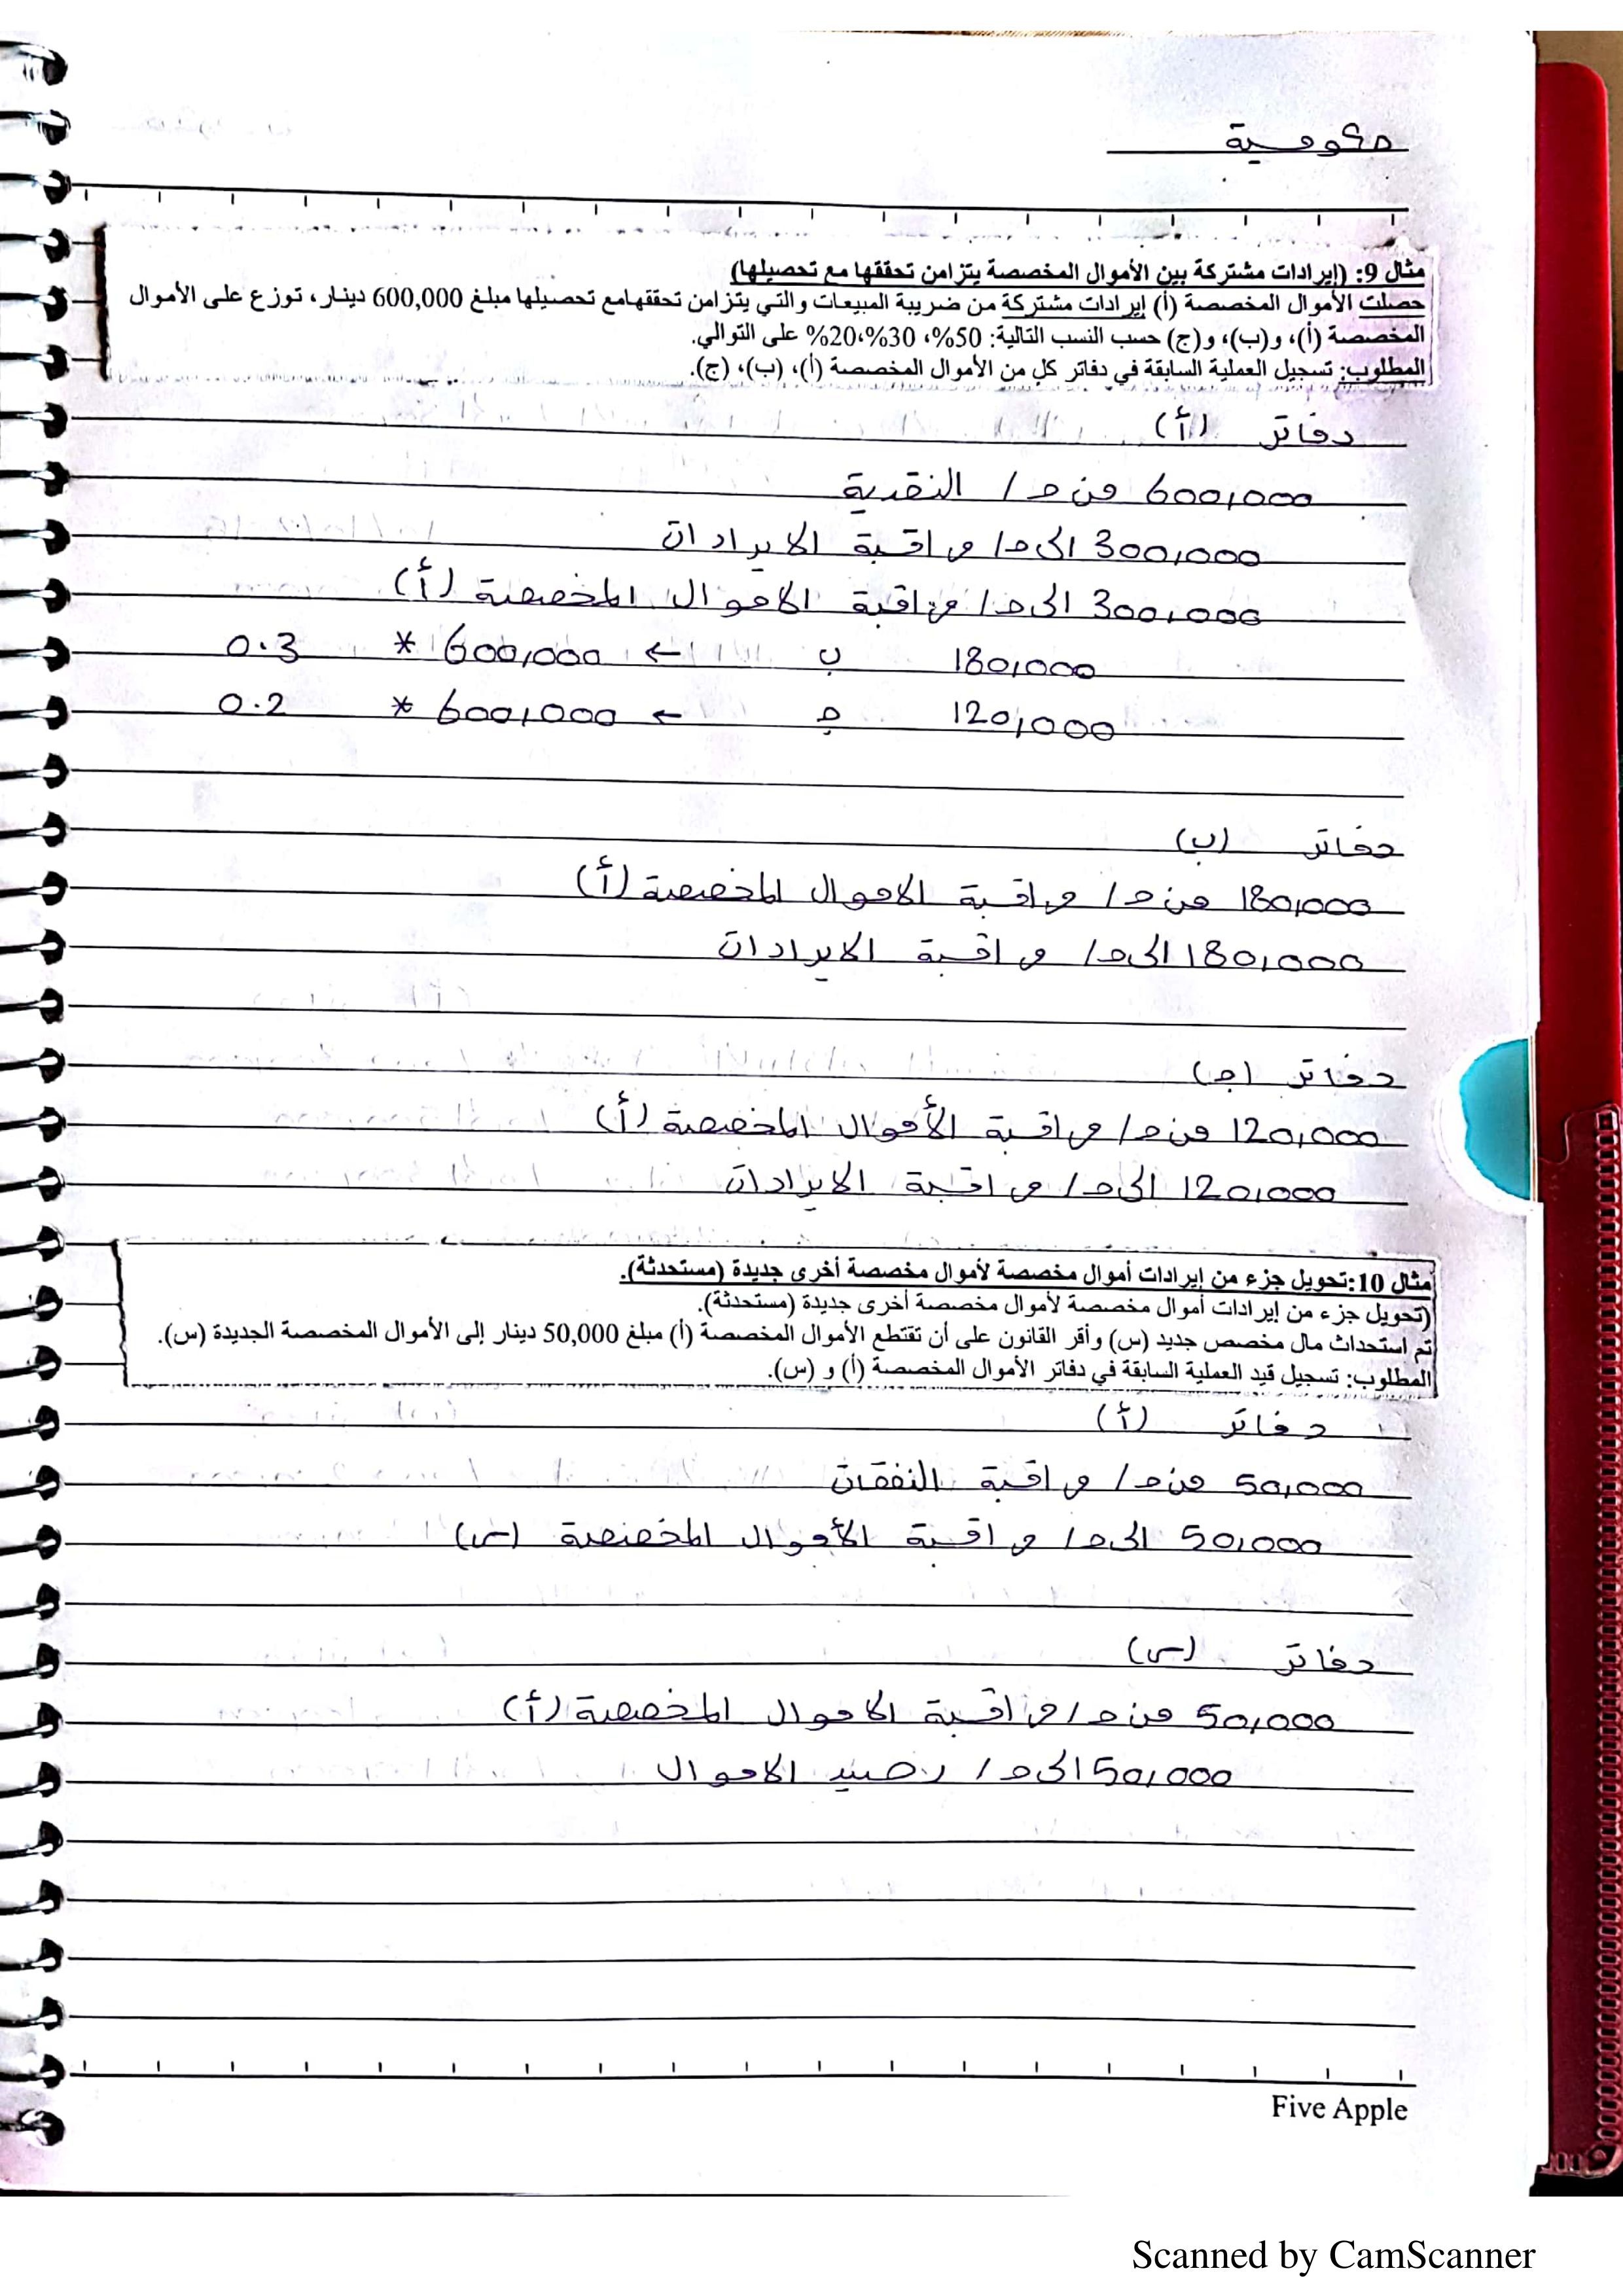 حكومية
مثال 9: (إيرادات مشتركة بين الأموال المخصصة يتزامن تحققها مع تحصيلها)
حصلت الأموال المخصصة (أ) إيرادات مشتركة من ضريبة المبيعات والتي يتزامن تحققهامع تحصيلها مبلغ 600,000 دينار، توزع على الأموال
المخصصة (أ)، و(ب)، و(ج) حسب النسب التالية: 50%، 30%،20% على التوالي.
المطلوب: تسجيل العملية السابقة في دفاتر كل من الأموال المخصصة (أ)، (ب)، (ج).
دفاتر (أ)
600,000 من ح/ النقدية
300,000 الى ح/ مراقبة الايرادات
300,000 الى ح/ مراقبة الاموال المخصصة (أ)
180,000 ب ← 600,000 * 0.3
120,000 ج ← 600,000 * 0.2
دفاتر (ب)
180,000 من ح/ مراقبة الاموال المخصصة (أ)
180,000 الى ح/ مراقبة الايرادات
دفاتر (ج)
120,000 من ح/ مراقبة الأموال المخصصة (أ)
120,000 الى ح/ مراقبة الايرادات
مثال 10:تحويل جزء من إيرادات أموال مخصصة لأموال مخصصة أخرى جديدة (مستحدثة).
(تحويل جزء من إيرادات أموال مخصصة لأموال مخصصة أخرى جديدة (مستحدثة).
تم استحداث مال مخصص جديد (س) وأقر القانون على أن تقتطع الأموال المخصصة (أ) مبلغ 50,000 دينار إلى الأموال المخصصة الجديدة (س).
المطلوب: تسجيل قيد العملية السابقة في دفاتر الأموال المخصصة (أ) و (س).
دفاتر (أ)
50,000 من ح/ مراقبة النفقات
50,000 الى ح/ مراقبة الأموال المخصصة (س)
دفاتر (س)
50,000 من ح/ مراقبة الاموال المخصصة (أ)
50,000 الى ح/ رصيد الاموال
Five Apple
Scanned by CamScanner